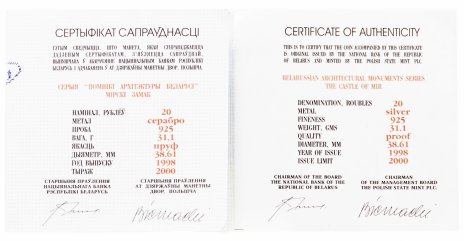 СЕРТЫФІКАТ САПРАЎДНАСЦІ
ГЭТЫМ СВЕДЧЫЦЦА, ШТО МАНЕТА, ЯКАЯ СУПРАВАДЖАЕЦЦА
ДАДЗЕНЫМ СЕРТЫФІКАТАМ, З'ЯЎЛЯЕЦЦА САПРАЎДНАЙ,
ВЫПУШЧАНА Ў АБАРАЧЭННЕ НАЦЫЯНАЛЬНЫМ БАНКАМ РЭСПУБЛІКІ
БЕЛАРУСЬ І АДЧАКАНЕНА Ў АТ ДЗЯРЖАЎНЫ МАНЕТНЫ ДВОР, ПОЛЬШЧА.
СЕРЫЯ "ПОМНІКІ АРХІТЭКТУРЫ БЕЛАРУСІ"
МІРСКІ ЗАМАК
НАМІНАЛ, РУБЛЁЎ 20
МЕТАЛ серабро
ПРОБА 925
ВАГА, Г 31.1
ЯКАСЦЬ пруф
ДЫЯМЕТР, ММ 38.61
ГОД ВЫПУСКУ 1998
ТЫРАЖ 2000
СТАРШЫНЯ ПРАЎЛЕННЯ
НАЦЫЯНАЛЬНАГА БАНКА
РЭСПУБЛІКІ БЕЛАРУСЬ
СТАРШЫНЯ ПРАЎЛЕННЯ
АТ ДЗЯРЖАЎНЫ МАНЕТНЫ
ДВОР, ПОЛЬШЧА
CERTIFICATE OF AUTHENTICITY
THIS IS TO CERTIFY THAT THE COIN ACCOMPANIED BY THIS CERTIFICATE
IS ORIGINAL ISSUED BY THE NATIONAL BANK OF THE REPUBLIC
OF BELARUS AND MINTED BY THE POLISH STATE MINT PLC.
BELARUSSIAN ARCHITECTURAL MONUMENTS SERIES
THE CASTLE OF MIR
DENOMINATION, ROUBLES 20
METAL silver
FINENESS 925
WEIGHT, GMS 31.1
QUALITY proof
DIAMETER, MM 38.61
YEAR OF ISSUE 1998
ISSUE LIMIT 2000
CHAIRMAN OF THE BOARD
THE NATIONAL BANK OF THE
REPUBLIC OF BELARUS
CHAIRMAN
OF THE MANAGEMENT BOARD
THE POLISH STATE MINT PLC.